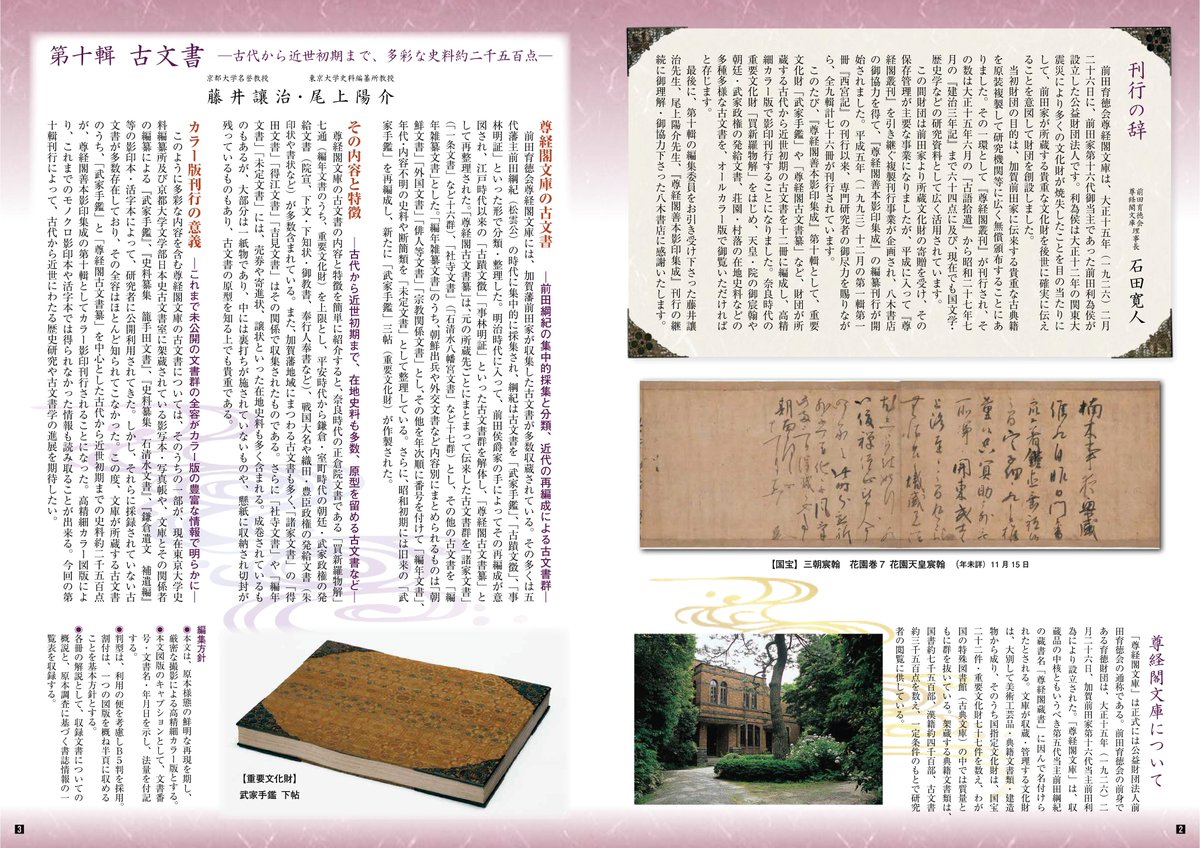 刊行の辞
前田育徳会理事長
尊経閣文庫
石田寛人
前田育徳会尊経閣文庫は、大正十五年（一九二六）二月
二十六日に、前田家第十六代御当主であった前田利為侯が
設立した公益財団法人です。利為侯は大正十二年の関東大
震災により多くの文化財が焼失したことを目の当たりに
して、前田家が所蔵する貴重な文化財を後世に確実に伝え
ることを意図して財団を創設しました。
当初財団の目的は、加賀前田家に伝来する貴重な古典籍
を原装複製して研究機関等に広く無償頒布することにあ
りました。その一環として『尊経閣叢刊』が刊行され、そ
の数は大正十五年六月の『古語拾遺』から昭和二十七年七
月の『建治三年記』まで六十四点に及び現在でも国文学・
歴史学などの研究資料として広く活用されています。
この間財団は前田家より所蔵文化財の寄贈を受け、その
保存管理が主要な事業になりましたが、平成に入って『尊
経閣叢刊』を引き継ぐ複製刊行事業が企画され、八木書店
の御協力を得て、『尊経閣善本影印集成』の編纂刊行が開
始されました。平成五年（一九九三）十二月の第一輯第一
冊『西宮記』の刊行以来、専門研究者の御尽力を賜りなが
ら、全九輯計七十六冊が刊行されています。
このたび、『尊経閣善本影印集成』第十輯として、重要
文化財「武家手鑑」や「尊経閣古文書纂」など、財団が所
蔵する古代から近世初期の古文書を十二冊に編成し、高精
細カラー版で影印刊行することになりました。奈良時代の
重要文化財「買新羅物解」をはじめ、天皇・院の御宸翰や
朝廷・武家政権の発給文書、荘園・村落の在地史料などの
多種多様な古文書を、オールカラー版で御覧いただければ
と存じます。
最後に、第十輯の編集委員をお引き受け下さった藤井讓
治先生、尾上陽介先生、『尊経閣善本影印集成』刊行の継
続に御理解・御協力下さった八木書店に感謝いたします。
【国宝】三朝宸翰 花園巻7 花園天皇宸翰 （年未詳）11月15日
尊経閣文庫について
「尊経閣文庫」は正式には公益財団法人前
田育徳会の通称である。前田育徳会の前身で
ある育徳財団は、大正十五年（一九二六）二
月二十六日、加賀前田家第十六代当主前田利
為により設立された。「尊経閣文庫」は、収
蔵品の中核ともいうべき第五代当主前田綱紀
の蔵書名「尊経閣蔵書」に因んで名付けら
れたとされる。文庫が収蔵・管理する文化財
は、大別して美術工芸品・典籍文書類・建造
物から成り、そのうち国指定文化財は、国宝
二十二件・重要文化財七十七件を数え、わが
国の特殊図書館（古典文庫）の中では質量と
もに群を抜いている。架蔵する典籍文書類は、
国書約七千五百部、漢籍約四千百部、古文書
約三千五百点を数え、一定条件のもとで研究
者の閲覧に供している。
2
第十輯 古文書 ―古代から近世初期まで、多彩な史料約二千五百点―
京都大学名誉教授 東京大学史料編纂所教授
藤井讓治・尾上陽介
尊経閣文庫の古文書 ―前田綱紀の集中的採集と分類、近代の再編成による古文書群―
前田育徳会尊経閣文庫には、加賀藩前田家が収集した古文書が多数収蔵されている。その多くは五
代藩主前田綱紀（松雲公）の時代に集中的に採集され、綱紀は古文書を「武家手鑑」、「古蹟文徴」、「事
林明証」といった形で分類・整理した。明治時代に入って、前田侯爵家の手によってその再編成が意
図され、江戸時代以来の「古蹟文徴」「事林明証」といった古文書群を解体し、「尊経閣古文書纂」と
して再整理された。「尊経閣古文書纂」は、元の所蔵先ごとにまとまって伝来した古文書群を「諸家文書」
（「一条文書」など十六群）、「社寺文書」（「石清水八幡宮文書」など十七群）とし、その他の古文書を「編
年雑纂文書」とした。「編年雑纂文書」のうち、朝鮮出兵や外交文書など内容別にまとめられるものは「朝
鮮文書」「外国文書」「俳人等文書」「宗教関係文書」とし、その他を年次順に番号を付けて「編年文書」、
年代・内容不明の史料や断簡類を「未定文書」として整理している。さらに、昭和初期には旧来の「武
家手鑑」を再編成し、新たに「武家手鑑」三帖（重要文化財）が作製された。
その内容と特徴 ―古代から近世初期まで、在地史料も多数、原型を留める古文書など―
尊経閣文庫の古文書の内容と特徴を簡単に紹介すると、奈良時代の正倉院文書である「買新羅物解」
七通（編年文書のうち、重要文化財）を上限とし、平安時代から鎌倉・室町時代の朝廷・武家政権の発
給文書（院宣、下文・下知状・御教書、奉行人奉書など）、戦国大名や織田・豊臣政権の発給文書（朱
印状や書状など）が多数含まれている。また、加賀藩地域にまつわる古文書も多く、「諸家文書」の「得
田文書」「得江文書」「吉見文書」はその関係で収集されたものである。さらに「社寺文書」や「編年
文書」「未定文書」には、売券や寄進状、譲状といった在地史料も多く含まれる。成巻されているも
のもあるが、大部分は一紙物であり、中には裏打ちが施されていないものや、懸紙に収納され切封が
残っているものもあり、古文書の原型を知る上でも貴重である。
カラー版刊行の意義 ―これまで未公開の文書群の全容がカラー版の豊富な情報で明らかに―
このように多彩な内容を含む尊経閣文庫の古文書については、そのうちの一部が、現在東京大学史
料編纂所及び京都大学文学部日本史古文書室に架蔵されている影写本・写真帳や、文庫とその関係者
の編纂による『武家手鑑』、『史料纂集 籠手田文書』、『史料纂集 石清水文書』、『鎌倉遺文 補遺編』
等の影印本・活字本によって、研究者に公開利用されてきた。しかし、それらに採録されていない古
文書が多数存在しており、その全容はほとんど知られてこなかった。この度、文庫が所蔵する古文書
のうち、「武家手鑑」と「尊経閣古文書纂」を中心とした古代から近世初期までの史料約二千五百点
が、尊経閣善本影印集成の第十輯としてカラー影印刊行されることになった。高精細カラー図版によ
り、これまでのモノクロ影印本や活字本では得られなかった情報も読み取ることが出来る。今回の第
十輯刊行によって、古代から近世にわたる歴史研究や古文書学の進展を期待したい。
【重要文化財】
武家手鑑 下帖
編集方針
●本文は、原本様態の鮮明な再現を期し、
厳密な撮影による高精細カラー版とする。
●本文図版のキャプションとして、文書番
号・文書名・年月日を示し、法量を付記
する。
●判型は、利用の便を考慮しB5判を採用。
割付は、一つの図版を概ね半頁に収める
ことを基本方針とする。
●各冊の解説として、収録文書についての
概説と、原本調査に基づく書誌情報の一
覧表を収録する。
3